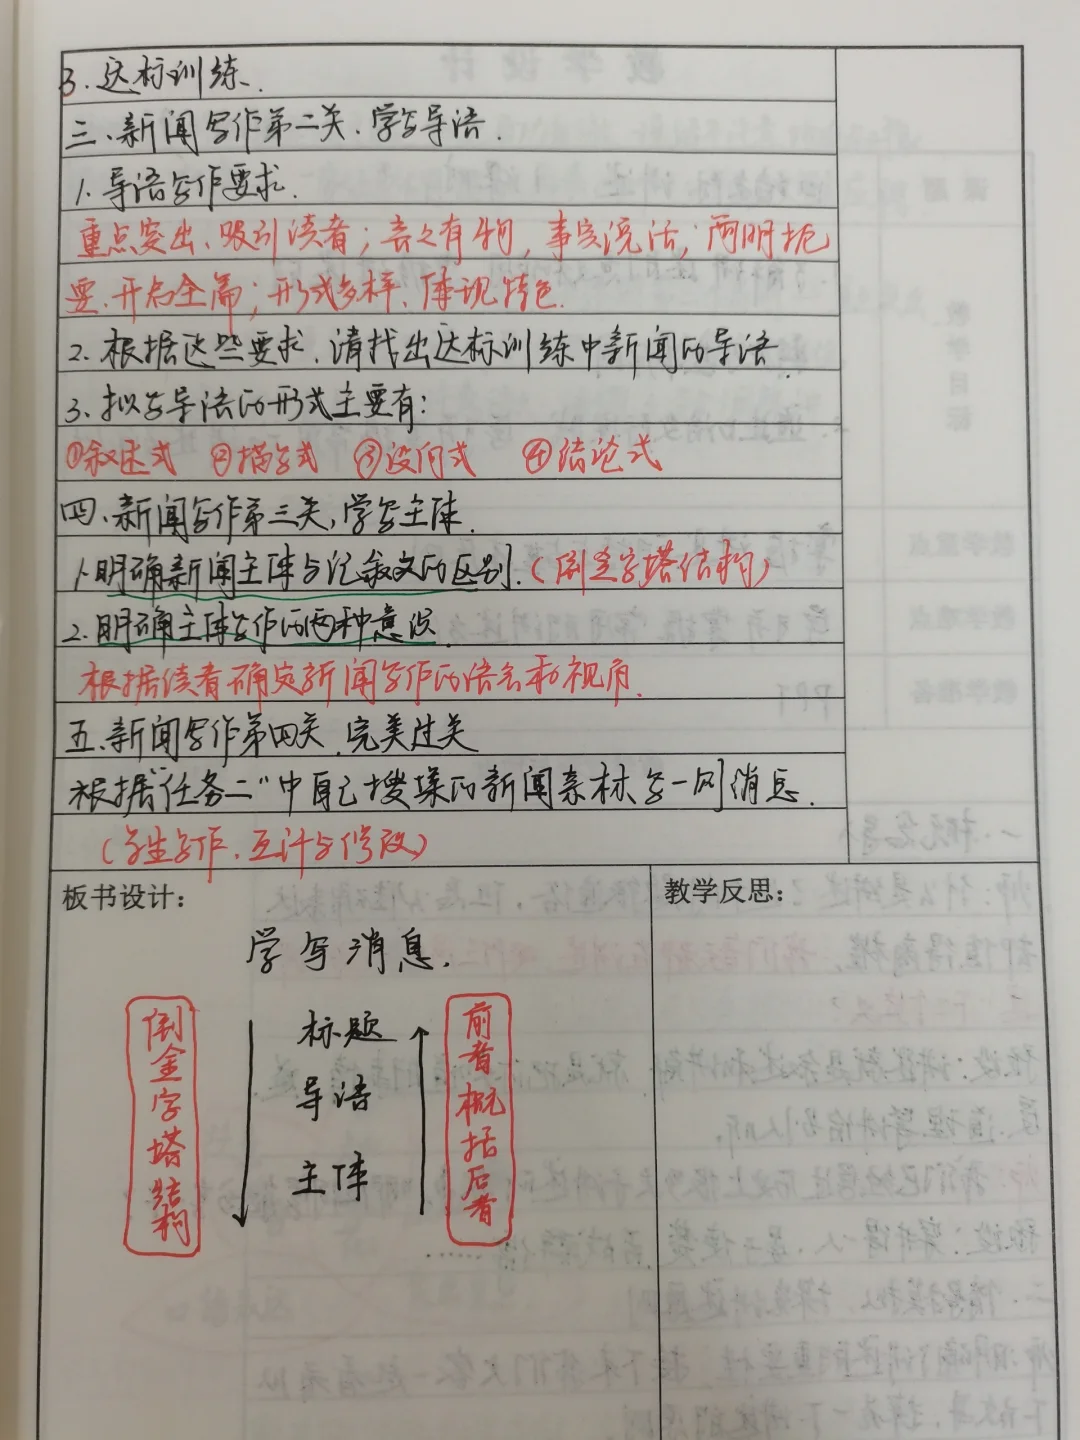 3.达标训练.
三、新闻写作第二关、学写导语.
1.导语写作要求.
重点突出、吸引读者；言之有物，事实说话；简明扼
要、开启全篇；形式多样、体现特色.
2.根据这些要求.请找出达标训练中新闻的导语.
3.拟写导语的形式主要有：
①叙述式 ②描写式 ③设问式 ④结论式
四、新闻写作第三关，学写主体.
1.明确新闻主体与记叙文的区别.（倒金字塔结构）
2.明确主体写作的两种意识
根据读者确定新闻写作的语言和视角.
五、新闻写作第四关.完美过关
根据“任务二”中自己搜集的新闻素材写一则消息.
（学生写作、互评与修改）
板书设计：
教学反思：
学写消息.
倒金字塔结构
标题
导语
主体
前者概括后者